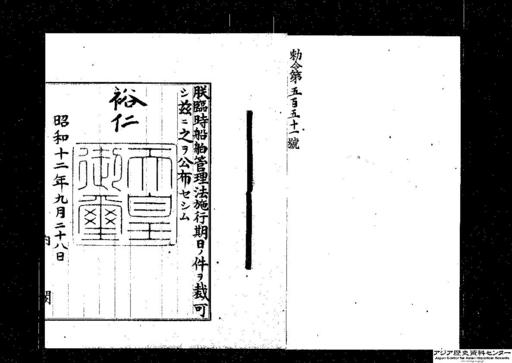 勅令第五百五十一號
朕臨時船舶管理法施行期日ノ件ヲ裁可
シ茲ニ之ヲ公布セシム
裕仁
天皇御璽
昭和十二年九月二十八日
内閣
アジア歴史資料センター
Japan Center for Asian Historical Records